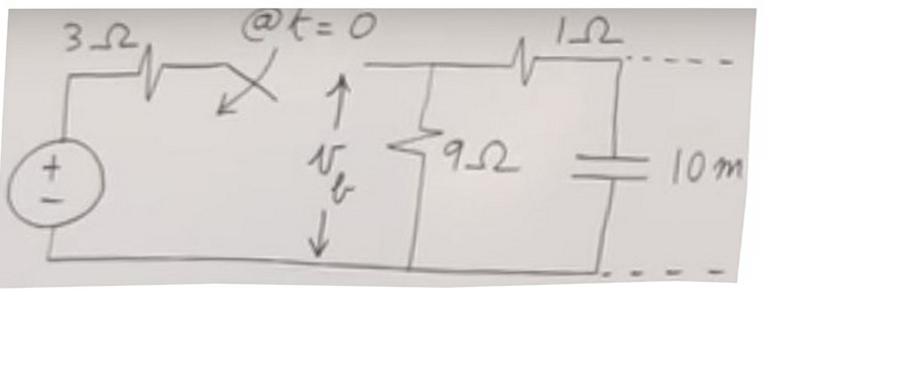 3Ω
@t=0
1Ω
+
-
v_b
9Ω
10 m